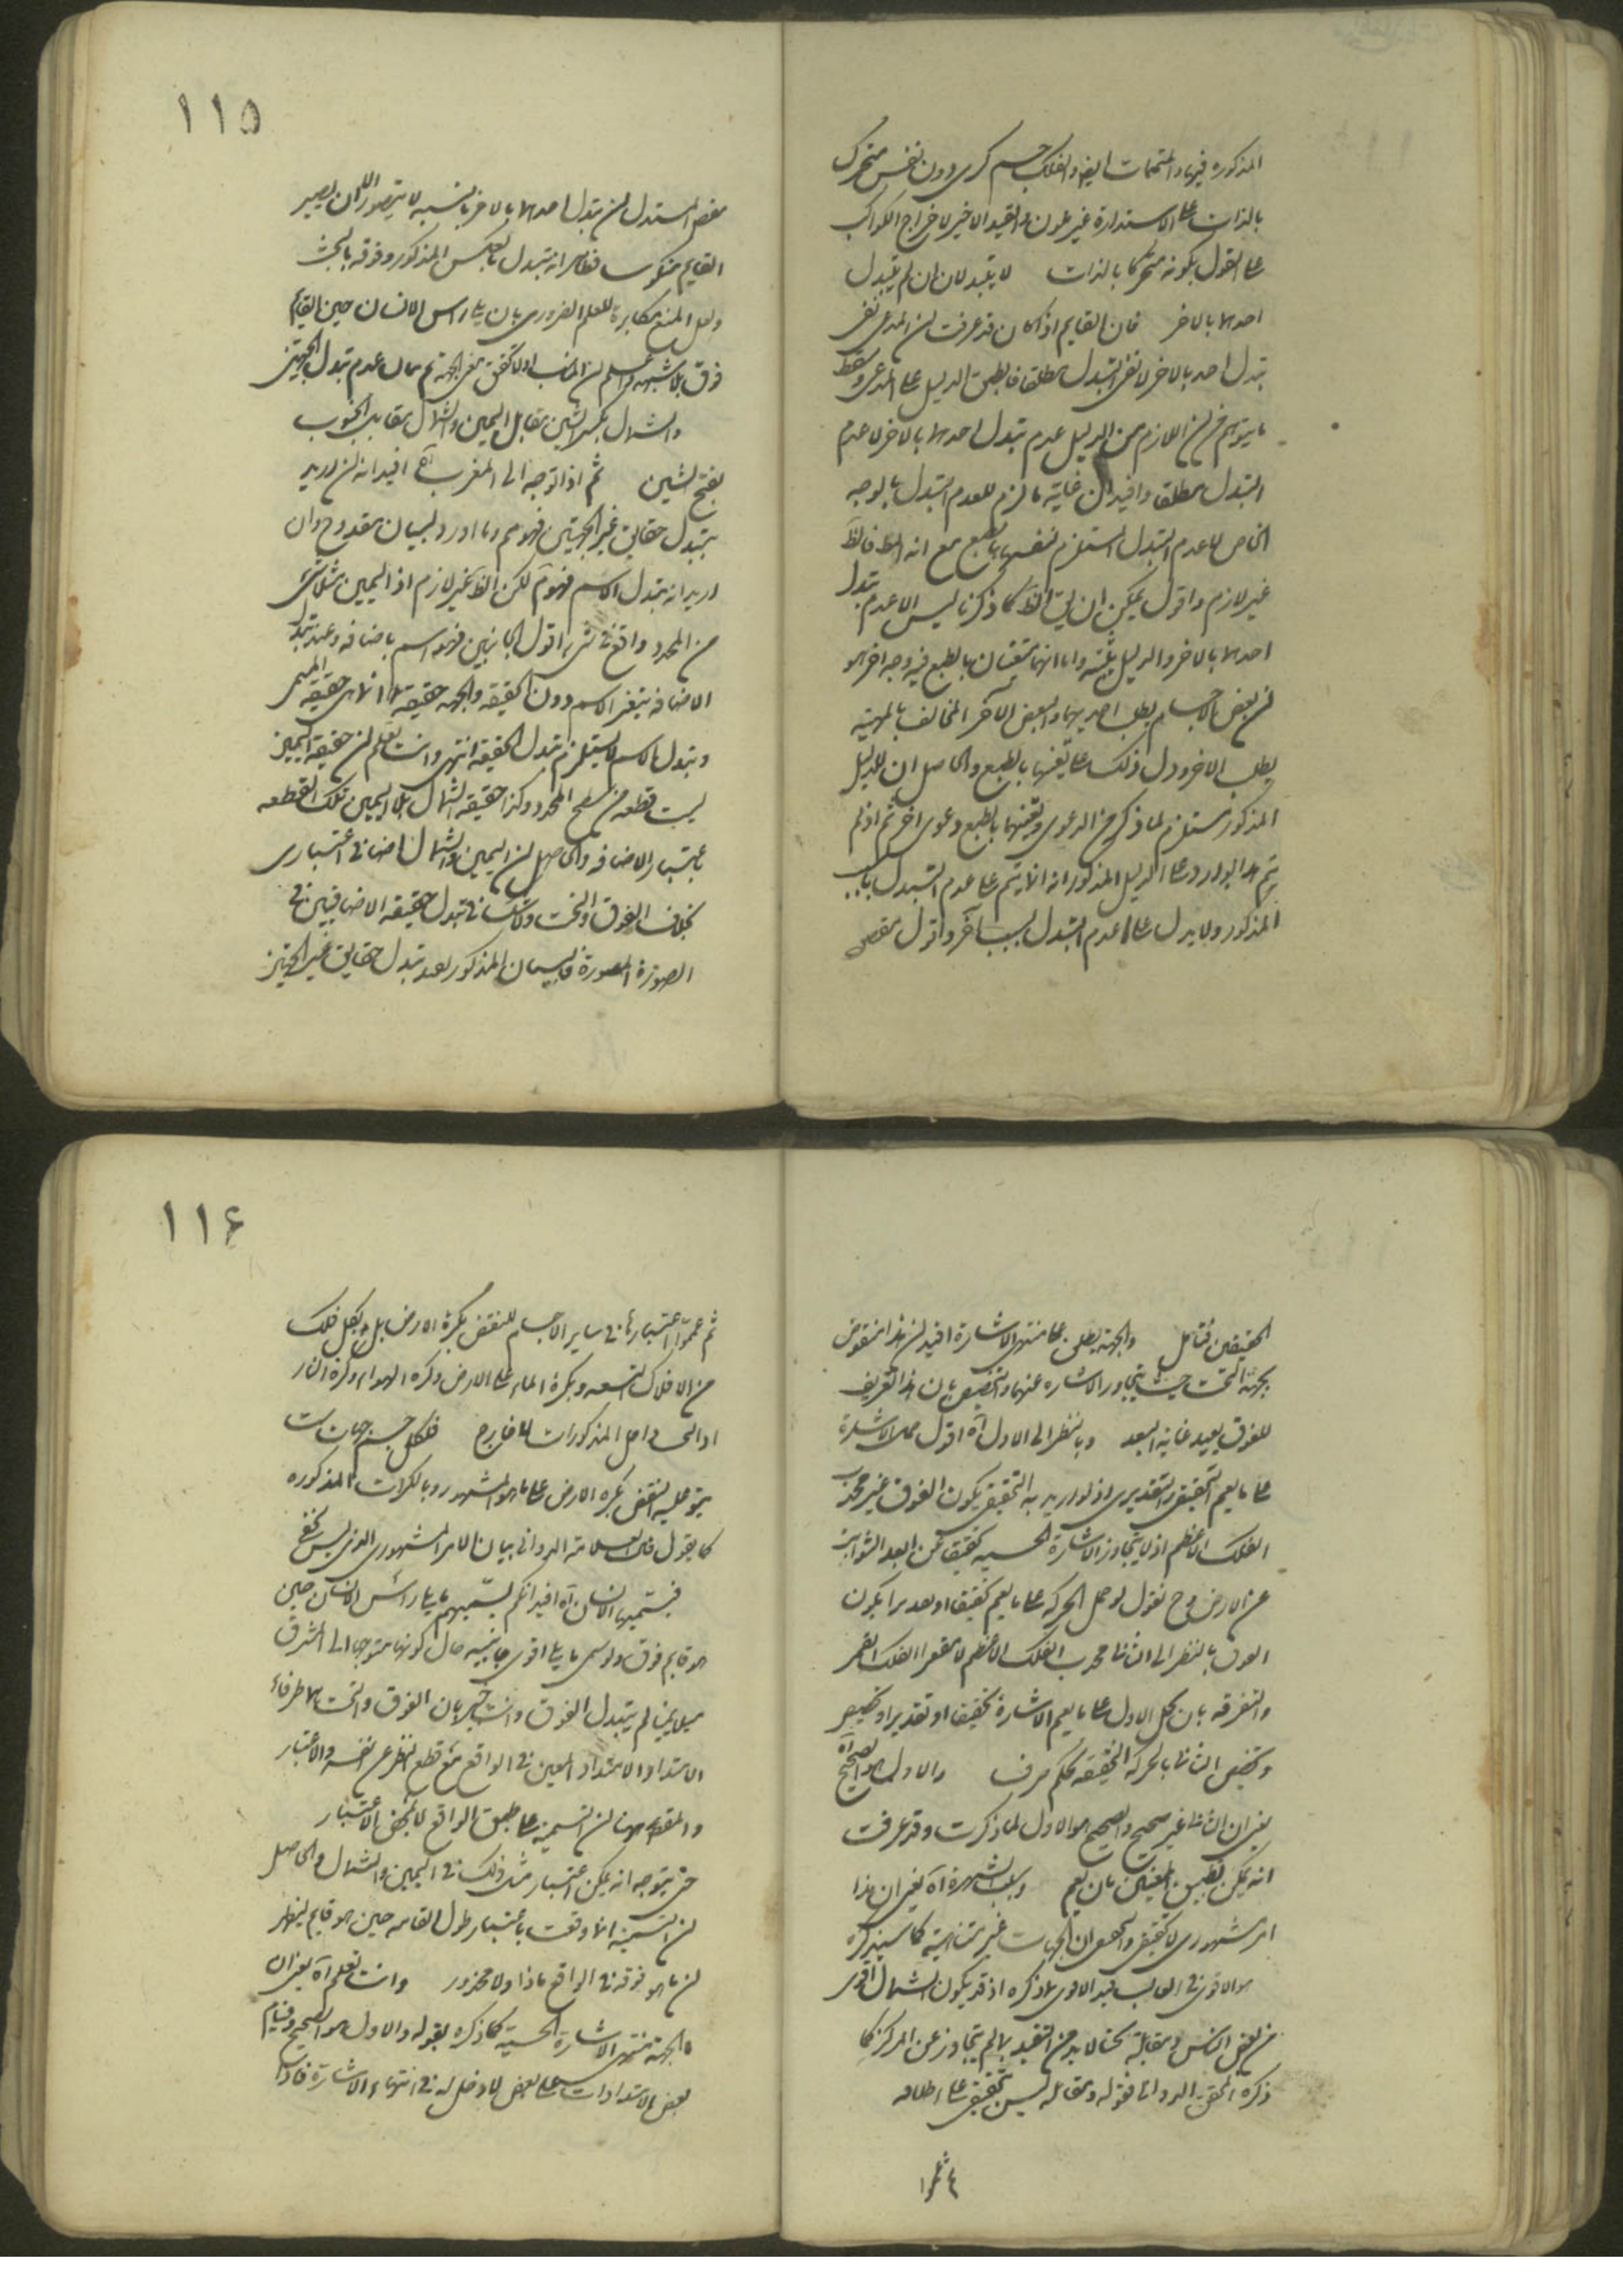 المذكورة فيها والمتممات ايضا والفلك جسم كرى دون نفس متحرك
بالذات على الاستدارة غير ملون والقيد الاخير لاخراج الكواكب
على القول بكونه متحركا بالذات لا يتبدلان ان لم يتبدل
احدهما بالاخر فان القايم اذا كان قد عرفت ان المدعى نفى
تبدل احد بالاخر لا نفى التبدل مطلقا فانطبق الدليل على المدعى وسقط
ما يتوهم من ان اللازم من الدليل عدم تبدل احدهما بالاخر لا عدم
التبدل مطلقا وافيد ان غاية ما لزم للعدم التبدل بالوجه
الخاص لا عدم التبدل المستلزم لتعينهما بالطبع مع انه المط فالمط
غير لازم واقول يمكن ان يق المط كما ذكرنا ليس الا عدم تبدل
احدهما بالاخر والدليل يثبته واما انهما متعينان بالطبع فيه وجه اخر هو
ان بعض الاجسام يطلب احديهما والبعض الآخر المخالف بالمهية
يطلب الاخر ودل ذلك على تعينهما بالطبع والحاصل ان الدليل
المذكور مستلزم لما ذكر من الدعوى وتعينهما بالطبع دعوى اخر ثم اذ لم
يتم هذا يورد على الدليل المذكور انه انما يتم على عدم التبدل بالسبب
المذكور ولا يدل على عدم التبدل بسبب آخر واقول مقصى
١١٥
مقص المستدل ان تبدل احدهما بالاخر بالنسبة لا يتصور الا ان يصير
القايم منكوسا فظاهر انه يتبدل بالعكس المذكور وفوقه بالبحث
ولعل المنع مكابرة للعلم الضرورى بان يلى راس الانسان حين القايم
فوق بلا شبهة واعلم ان المناسب اولا تحقق معنى الجهة ثم بيان عدم تبدل الجهتين
والشمال بكسر الشين مقابل اليمين والشمال مقابل الجنوب
بفتح الشين ثم اذا توجه الى المغرب آه افيد انه ان اريد
بتبدل حقايق غير الجهتين فهو مم وما اورد لبيان مقدوح وان
اريد انه يتبدل الاسم فهو مم لكن المط غير لازم اذ اليمين مثلا شئ
من المحدد واقع فى شرقه اقول الجانبين فهو اسم باضافة وعند تبدل
الاضافة يتغير الاسم دون الحقيقة والجهة حقيقة انما هى حقيقة المسمى
وتبدل الاسم لا يستلزم تبدل الحقيقة انتهى وانت تعلم ان حقيقة اليمين
ليست قطعة من سطح المحدد وكذا حقيقة الشمال بل اليمين تلك القطعة
باعتبار الاضافة والحاصل ان اليمين والشمال اضافى اعتبارى
بخلاف الفوق والتحت ولا شك فى تبدل حقيقة الاضافيين فى
الصورة المصورة فالبيان المذكور يفيد تبدل حقايق غير الجهتين
الحقيقين فتامل والجهة يطلق على منتهى الاشارة افيد ان هذا منقوض
بجهة التحت حيث يتجاوز الاشارة عنها والتخصيص بان هذا التعريف
للفوق بعيد غاية البعد وبالنظر الى الاول آه اقول حمل الاشارة
على ما يعم التحقيقى والتقديرى اذ لو اريد به التحقيق يكون الفوق غير محدب
الفلك الاعظم اذ لا يتجاوز الاشارة الحسية تحقيقا عن ابعد الثوابت
عن الارض وح نقول لو حمل الحركة على ما يعم تحقيقا او تقديرا يكون
الفوق بالنظر الى الثانى محدب الفلك الاعظم لا مقعر الفلك القمر
والتفرقة بان يحمل الاول على ما يعم الاشارة تحقيقا او تقديرا وتخصيص
وتخصيص الثانى بالحركة الحقيقة تحكم صرف والاول هو الصحيح آه
يعنى ان الثانى غير صحيح والصحيح هو الاول لما ذكرت وقد عرفت
انه يمكن تطبيق المعنيين بان يعم وسبب الشهرة آه يعنى ان هذا
امر مشهورى لا تحقيقى والحق ان الجهات غير متناهية كما سيذكره
هو الاقوى فى الغالب قيد الاقوى بما ذكره اذ قد يكون الشمال اقوى
من بعض الناس ومقابله تحتا لا بد من التقييد بما لم يتجاوز عن المركز كما
ذكره المحقق الدوانى فقوله ومقابله ليس بتحقيق على اطلاقه
ثم عموا
١١٦
ثم عمموا اعتبارها فى ساير الاجسام للنقض بكرة الارض بل بكل فلك
من الافلاك التسعة وبكرة الماء على الارض وكرة الهواء وكرة النار
اذ التى داخل المذكورات لا خارج فلكل جسم جهات ست
يتوجه عليه النقض بكرة الارض على ما هو المشهور وبالكرات المذكورة
كما يقول فان العلامة الدوانى بيان للامر المشهورى الذى ليس بحق
فيسميها الانسان آه افيد انكم لستم بينهم ما يلى راس الانسان حين
هو قايم فوق ولو سمى ما يلى اقوى جانبيه حال كونها متوجها الى المشرق
يمينا لم يتبدل الفوق وانت خبير بان الفوق والتحت هما طرفا
الامتداد والامتداد المعين فى الواقع مع قطع النظر عن نفسه والاعتبار
والمقصود هنا ان التسمية على طبق الواقع لا بمحض الاعتبار
حتى يتوجه انه يمكن اعتبار مثل ذلك فى اليمين والشمال والحاصل
ان التسمية انما وقعت باعتبار طول القامة حين هو قايم ليظهر
ان ما هو فوقه فى الواقع ماذا ولا محذور وانت تعلم آه يعنى ان
الجهة منتهى الاشارة الحسية كما ذكره بقوله والاول هو الصحيح وقيام
بعض الامتدادات على بعض لا دخل له فى انتهاء الاشارة فاذا